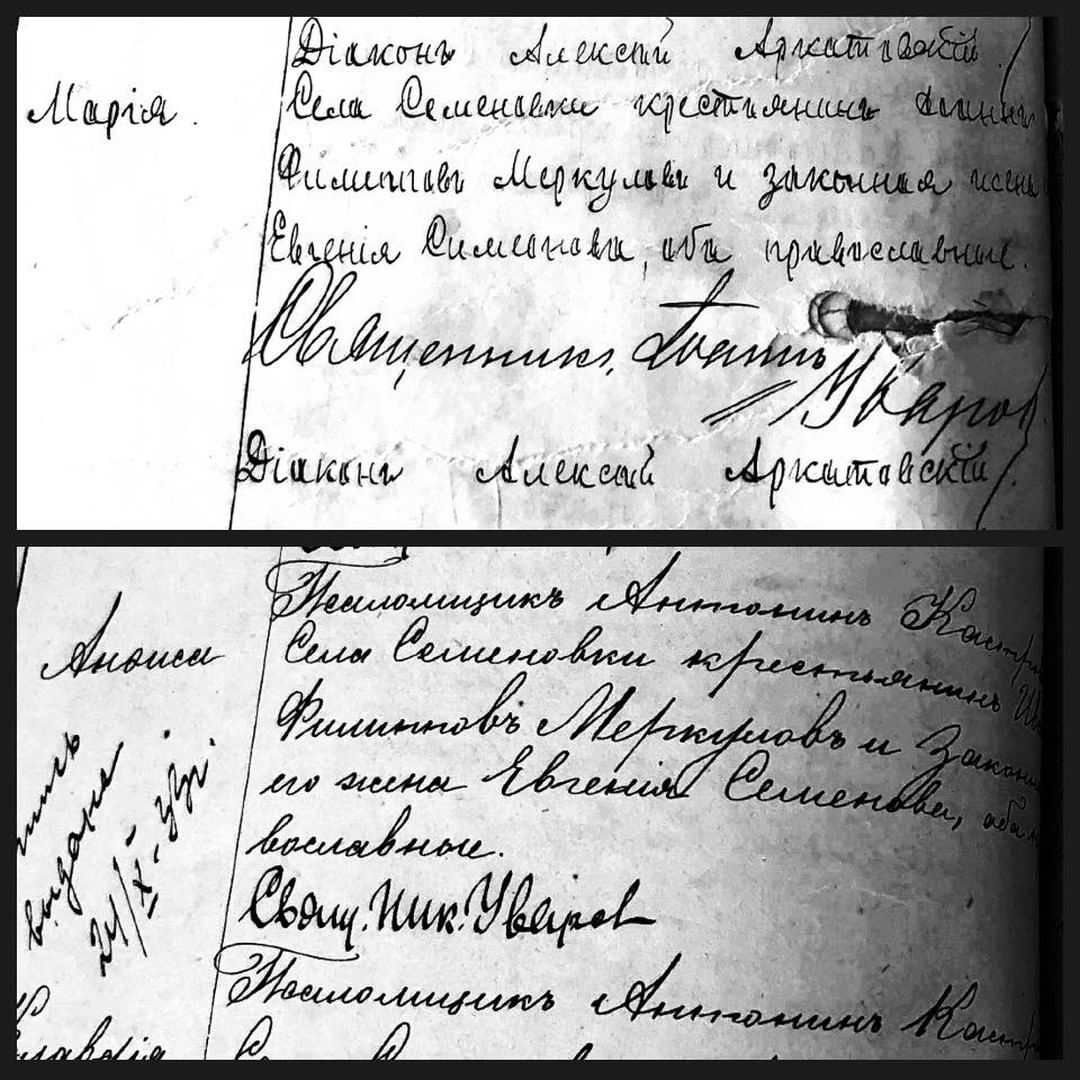 Діаконъ Алексій Аркатовскій
Марія.
Села Семеновки крестьянинъ Іоаннъ
Филипповъ Меркуловъ и законная жена
Евгенія Симеонова, оба православные.
Священникъ, Іоаннъ
Уваров
Діаконъ Алексій Аркатовскій
Псаломщикъ Антонинъ
Анѳиса
Села Семеновки крестьянинъ
Филипповъ Меркуловъ и Законн
его жена Евгенія Семенова, оба
вославные.
выдана
Свящ. Ник. Уваров
Псаломщикъ Антонинъ